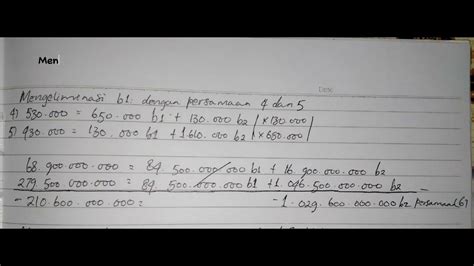 Men
Date
Mengeliminasi b1 dengan persamaan 4 dan 5
4) 530.000 = 650.000 b1 + 130.000 b2 | x 130.000 |
5) 430.000 = 130.000 b1 + 1.610.000 b2 | x 650.000
68.900.000.000 = 84.500.000.000 b1 + 16.900.000.000 b2
279.500.000.000 = 84.500.000.000 b1 + 1.046.500.000.000 b2 -
- 210.600.000.000 = - 1.029.600.000.000 b2 persamaan 6)